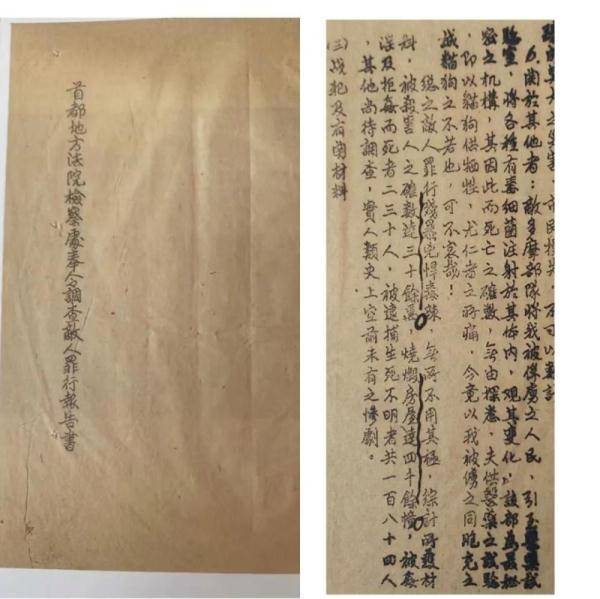 首都地方法院檢察處奉令調查敵人罪行報告書
市民損失,不可以數計
6.関於其他者:敵多摩部隊將我被俘虜之人民,引至醫藥試
驗室,將各種有毒細菌注射於其体內,觀其變化,該部為最秘
密之机構,其因此而死亡之確數,無由探悉,夫供醫藥之試驗
,即以貓狗供牺牲,尤仁者之所痛,今竟以我被虜之同胞充之
誠貓狗之不若也,可不哀哉!
總之敵人罪行殘暴兇悍毒辣 無所不用其極,綜計所獲材
料,被殺害人之確數達三十餘萬,燒燬房屋達四千餘幢,被姦
淫及拒姦而死者二三十人,被逮捕生死不明者共一百八十四人
,其他尚待調查,實人類史上空前未有之慘劇。
(三)战犯及有関材料